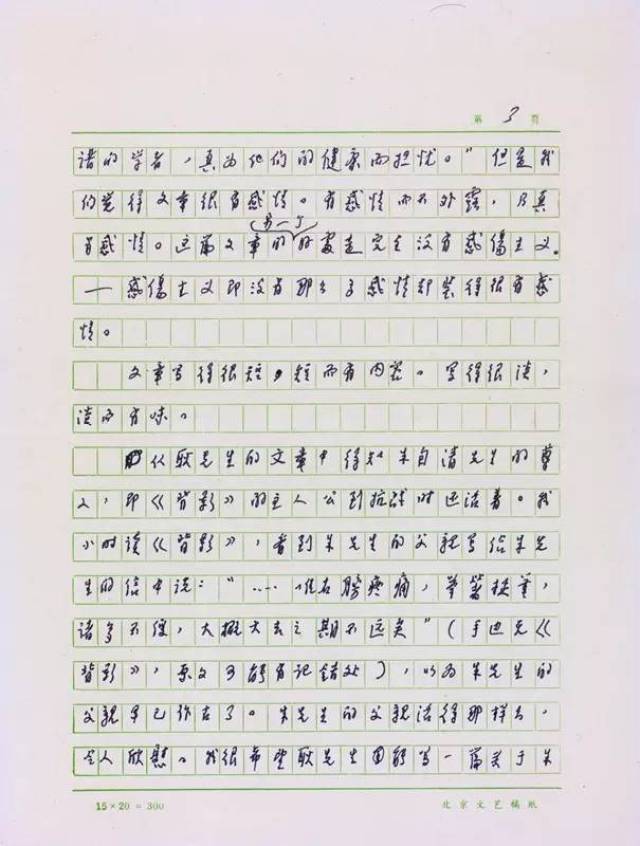 第 3 页
诸的学者，真为他们的健康而担忧。”但是我
们觉得文章很有感情。有感情而不外露，乃真
另一个
有感情。这篇文章的好处是完全没有感傷主义。
——感傷主义即没有那么多感情却装得很有感
情。
文章写得很短，短而有内容。写得很淡，
淡而有味。
从耿先生的文章中得知朱自清先生的尊
人，即《背影》的主人公到抗战时还活着。我
小时读《背影》，看到朱先生的父親写给朱先
生的信中说：“……惟右膀疼痛，举箸提笔，
诸多不便，大概大去之期不远矣”（手边无《
背影》，原文可能有记错处），以为朱先生的
父親早已作古了。朱先生的父親活得那样长，
令人欣慰。我很希望耿先生回能写一篇关于朱
15×20=300
北京文艺稿纸